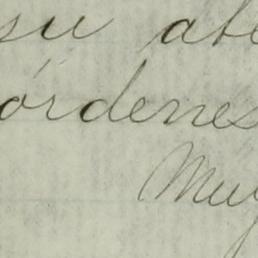 su ate
órdenes
Muy